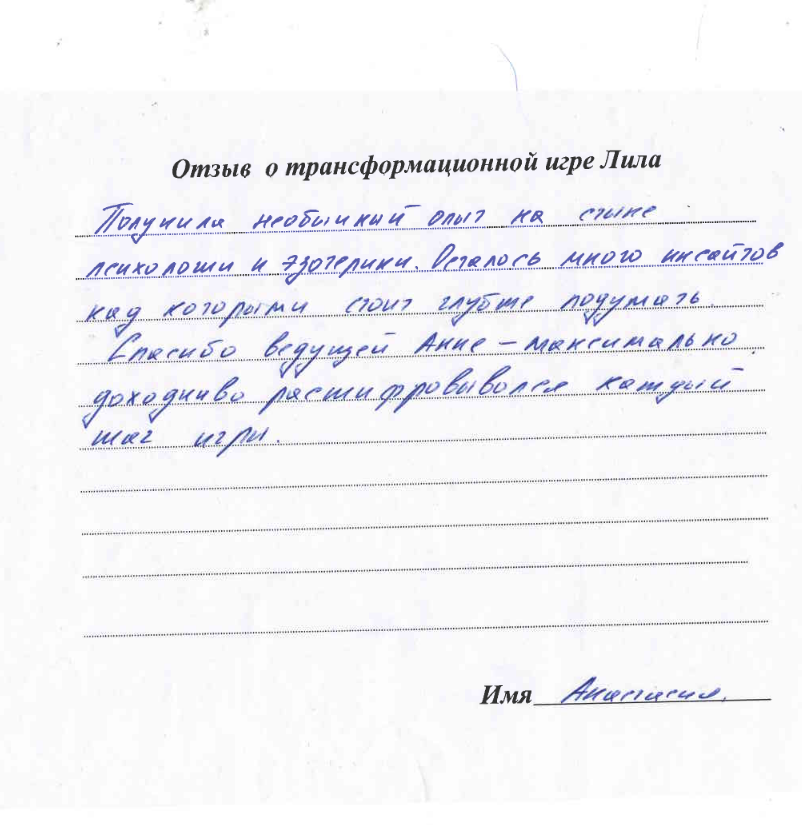 Отзыв о трансформационной игре Лила
Получила необычный опыт на стыке
психологии и эзотерики. Осталось много инсайтов
над которыми стоит глубже подумать.
Спасибо ведущей Анне – максимально
доходчиво расшифровывался каждый
шаг игры.
Имя Анастасия.